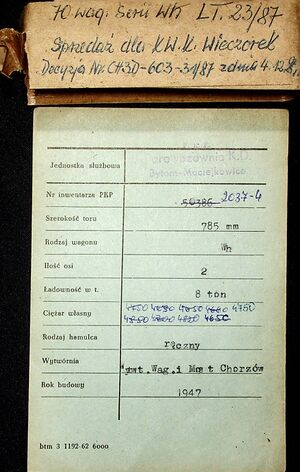 70 wag. Serii Wh LT. 23/87
Sprzedaż dla K.W.K. Wieczorek
Decyzja Nr. CH3D-603-31/87 z dnia 4.12.87
Jednostka służbowa
P.K.P.
Parowozownia K.D.
Bytom-Maciejkowice
Nr inwentarza PKP 50386 2037-4
Szerokość toru 785 mm
Rodzaj wagonu Wh
Ilość osi 2
Ładowność w t. 8 ton
Ciężar własny 4750
Rodzaj hamulca ręczny
Wytwórnia Wag. i Most Chorzów
Rok budowy 1947
btm 3 1192-62 6000